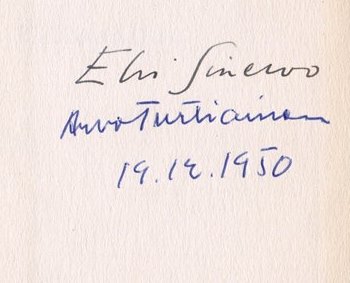 Elvi Sinervo
Arvo Turtiainen
19.12.1950